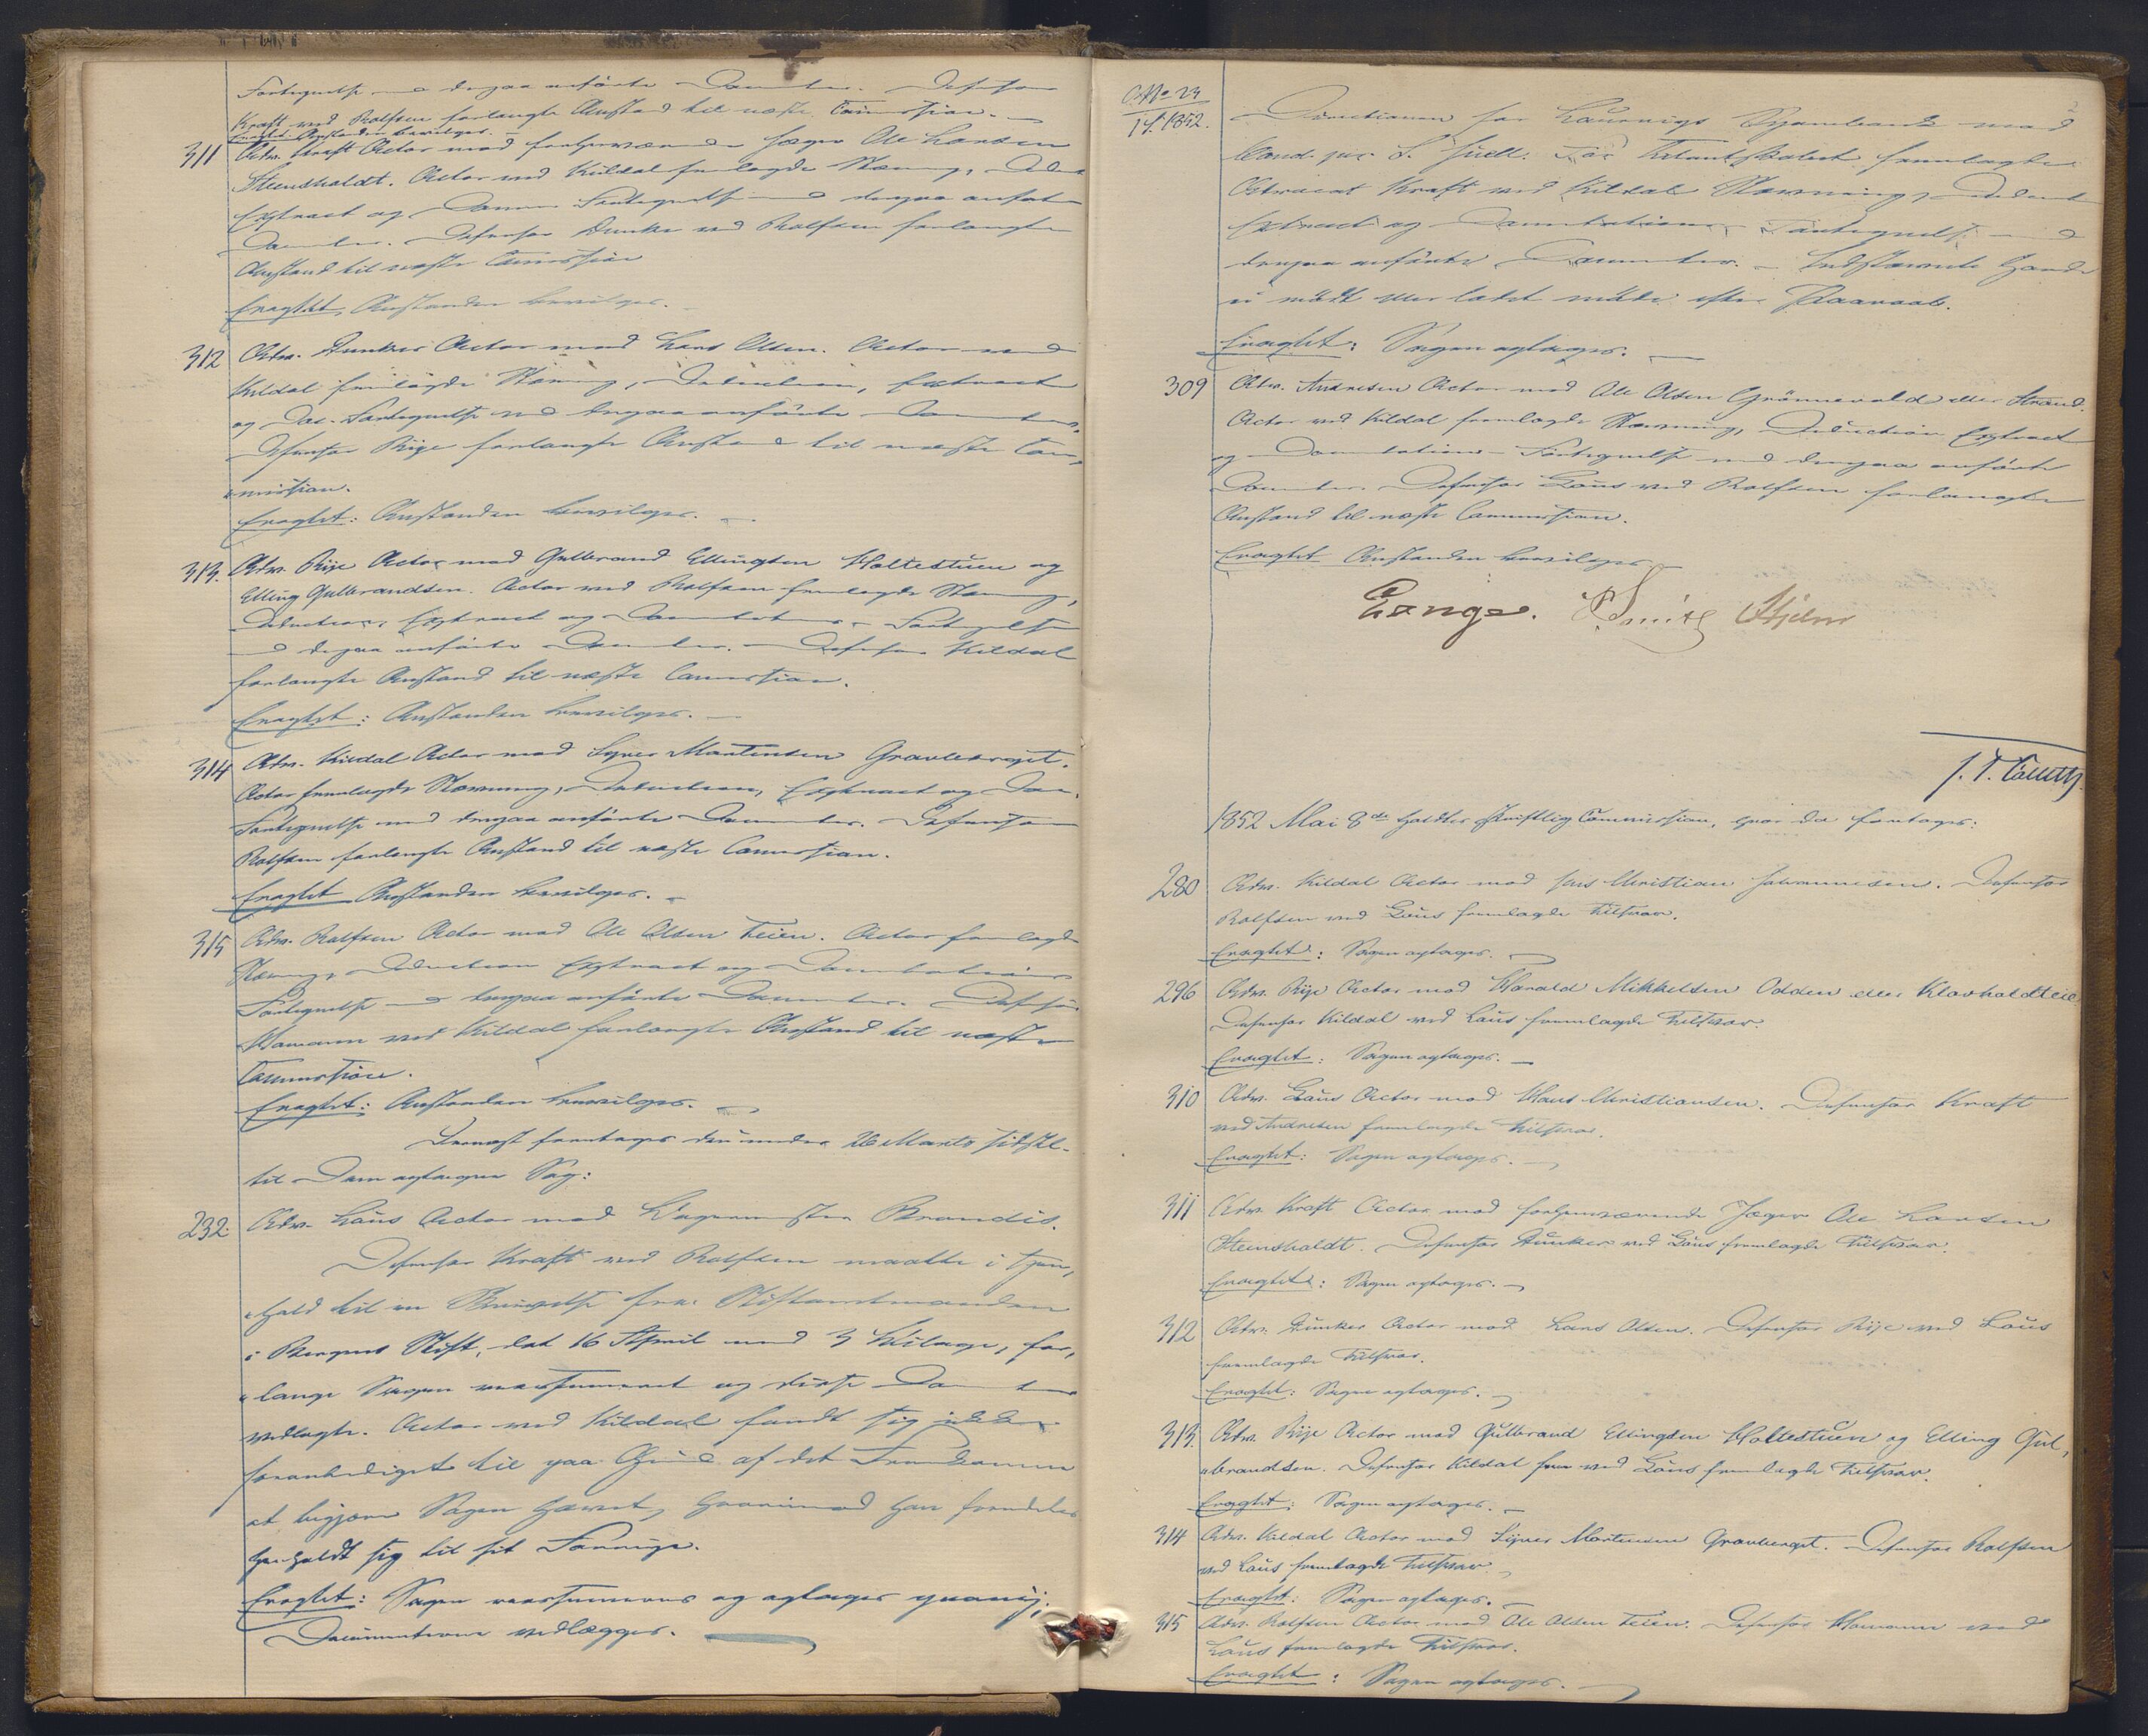 Fortegnelse med derpaa anførte Documenter. Defensor
Kraft ved Rolfsen forlangte Anstand til næste Commission.
Eragtet Anstanden bevilges.
311 Adv. Kraft Actor mod forhenværende Jæger Ole Larsen
Steensholdt. Actor ved Kildal fremlagde Stævning, Deduction
Extract og Docum. Fortegnelse med derpaa anførte
Documenter. Defensor Dunker ved Rolfsen forlangte
Anstand til næste Commission
Eragtet, Anstanden bevilges.
312 Adv. Dunker Actor mod Lars Olsen. Actor ved
Kildal fremlagde Stævning, Deduction, Extract
og Doc. Fortegnelse med derpaa anførte Documenter.
Defensor Rije forlangte Anstand til næste Com-
mission.
Eragtet: Anstanden bevilges.
313. Adv. Rije Actor mod Gulbrand Ellingsen Holtestuen og
Elling Gulbrandsen. Actor ved Rolfsen fremlagde Stævning,
Deduction, Extract og Documentations-Fortegnelse
med derpaa anførte Documenter. Defensor Kildal
forlangte Anstand til næste Commission.
Eragtet: Anstanden bevilges.
314 Adv. Kildal Actor mod Syver Martinsen Gravberget.
Actor fremlagde Stævning, Deduction, Extract og Doc.
Fortegnelse med derpaa anførte Documenter. Defensor
Rolfsen forlangte Anstand til næste Commission.
Eragtet Anstanden bevilges.
315 Adv. Rolfsen Actor mod Ole Olsen Teien. Actor fremlagde
Stævning, Deduction Extract og Documentations
Fortegnelse med derpaa anførte Documenter. Defensor
Homann ved Kildal forlangte Anstand til næste
Commission.
Eragtet: Anstanden bevilges.
Dernæst foretoges den under 26 Marts sidstl.
til Dom optagne Sag:
232. Adv. Laus Actor mod Brandis.
Defensor Kraft ved Rolfsen maatte i Hen-
hold til en Skrivelse fra Stiftamtmanden
i Bergens Stift, dat 16 April med 3 Bilage, for-
lange Sagen reassumeret og disse Documenter
vedlagte. Actor ved Kildal fandt sig ikke
foranlediget til paa Grund af det Fremkomne
at begjære Sagen hævet, hvorimod han fremdeles
henholdt sig til sit Forrige.
Eragtet: Sagen reassumeres og optages paany.
Documenterne vedlægges.
No 24
1/5 1852.
Directionen for Laurvigs Sparebank mod
Cand. jur. S. Juell. For Citantskabet fremlagde
Advocat Kraft ved Kildal Stævning, Deduct
Extract og Documentations Fortegnelse med
derpaa anførte Documenter. Indstævnte havde
ei mødt eller ladet møde efter Paaraab.
Eragtet: Sagen optages.
309 Adv. Andresen Actor mod Ole Olsen Grønnevold eller Strand.
Actor ved Kildal fremlagde Stævning, Deduction Extract
og Documentations-Fortegnelse med derpaa anførte
Documenter. Defensor Laus ved Rolfsen forlangte
Anstand til næste Commission.
Eragtet Anstanden bevilges
Lange. Smith Hjelm
1852 Mai 8de holdtes Skriftlig Commission, hvor da foretoges:
280 Adv. Kildal Actor mod Jens Christian Johannesen. Defensor
Rolfsen ved Laus fremlagde Tilsvar.
Eragtet: Sagen optages.
296 Adv. Rije Actor mod Harald Mikkelsen Odden eller Klavholdteie
Defensor Kildal ved Laus fremlagde Tilsvar.
Eragtet: Sagen optages.
310 Adv. Laus Actor mod Hans Christiansen. Defensor Kraft
ved Andresen fremlagde Tilsvar.
Eragtet: Sagen optages.
311 Adv. Kraft Actor mod forhenværende Jæger Ole Larsen
Steensholdt. Defensor Dunker ved Laus fremlagde Tilsvar.
Eragtet: Sagen optages.
312 Adv. Dunker Actor mod Lars Olsen. Defensor Rije ved Laus
fremlagde Tilsvar.
Eragtet: Sagen optages.
313. Adv. Rije Actor mod Gulbrand Ellingsen Holtestuen og Elling Gul-
brandsen. Defensor Kildal ved Laus fremlagde Tilsvar.
Eragtet: Sagen optages.
314 Adv. Kildal Actor mod Syver Martinsen Gravberget. Defensor Rolfsen
ved Laus fremlagde Tilsvar.
Eragtet: Sagen optages.
315 Adv. Rolfsen Actor mod Ole Olsen Teien. Defensor Homann ved
Laus fremlagde Tilsvar.
Eragtet: Sagen optages.